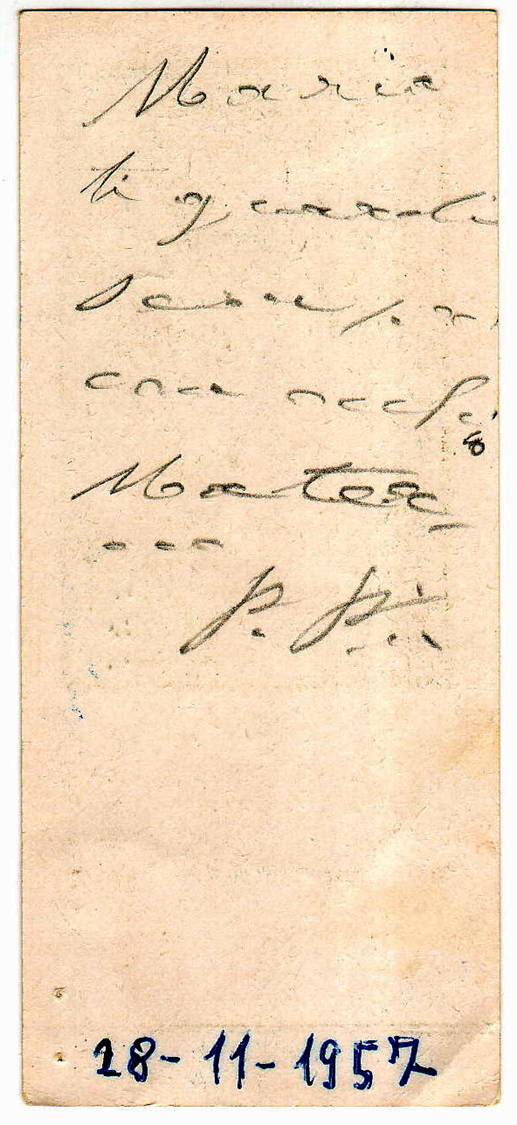 Maria
ti guardi
sempre
con occhio
Mater
no
P. Pio
28-11-1957